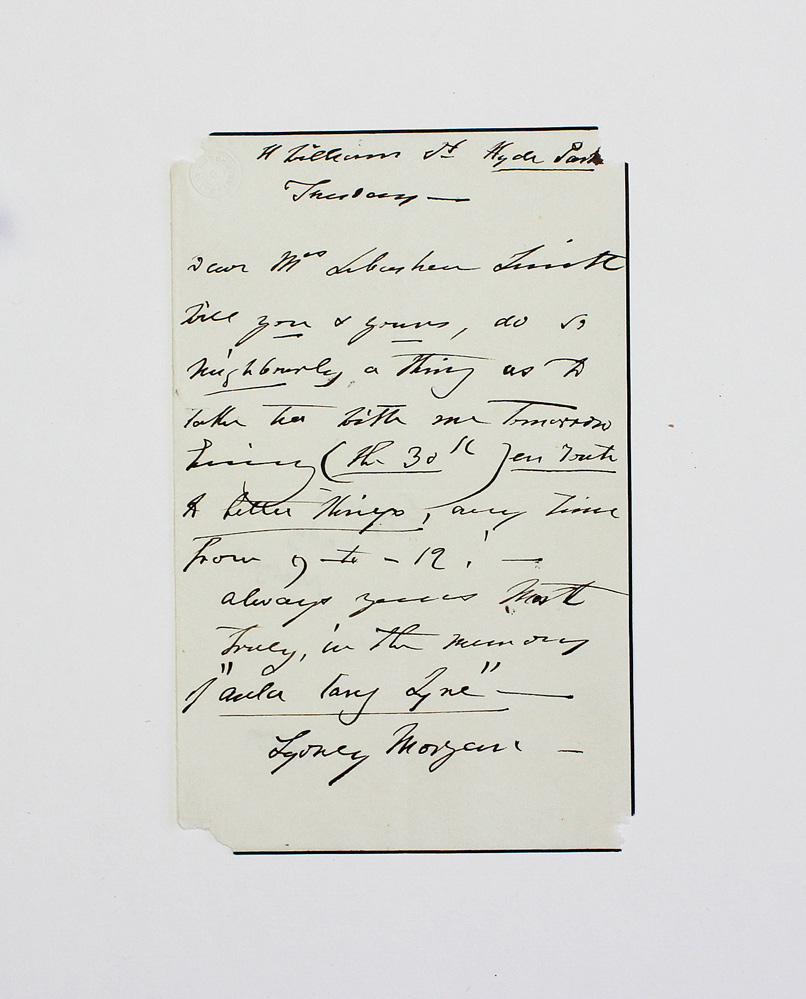 11 William St Hyde Park
Tuesday —
Dear Mrs Smith
Will you & yours, do so
neighbourly a thing as to
take tea with me Tomorrow
Evening (the 30th) en route
to better things, any time
from 9 – to – 12! —
always yours Most
Truly, in the memory
of "aula lang Zyne" —
Sydney Morgan —